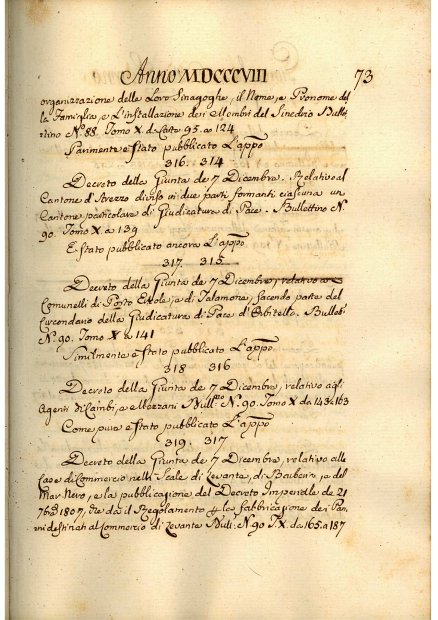 Anno MDCCCVIII 73
organizzazione delle Loro Sinagoghe, il Nome, e Pronome del
la Famiglia, e L'installazione dei Membri del Sinedrio Bullet
tino N.º 88. Tomo X. da Carte 95. a 124
Parimente è stato pubblicato L'appo
316. 314
Decreto della Giunta de 7 Dicembre. Relativo al
Cantone d'Arezzo diviso in due parti formanti ciascuna un
Cantone particolare di Giudicatura di Pace. Bullettino N.
90. Tomo X a 139
E stato pubblicato ancora L'appo
317 315
Decreto della Giunta de 7 Dicembre, relativo a
Comunelli di Porto Ercole, e di Talamone, facendo parte del
Circondario della Giudicatura di Pace d'Orbitello. Bullet
N.º 90. Tomo X a 141
Similmente è stato pubblicato L'appo
318 316
Decreto della Giunta de 7 Dicembre, relativo agli
Agenti di Cambi, e Mezzani Bull.no N. 90. Tomo X da 143 a 163
Come pure è stato pubblicato L'appo
319. 317
Decreto della Giunta de 7 Dicembre, relativo alle
Case di Commercio nelle Scale di Levante, di Barberia, e del
Mar Nero, e la pubblicazione del Decreto Imperiale de 21
7bre 1807, che da il Regolamento la fabbricazione dei Pan
ni destinati al Commercio di Levante Bull: N. 90 T. X. da 165. a 187